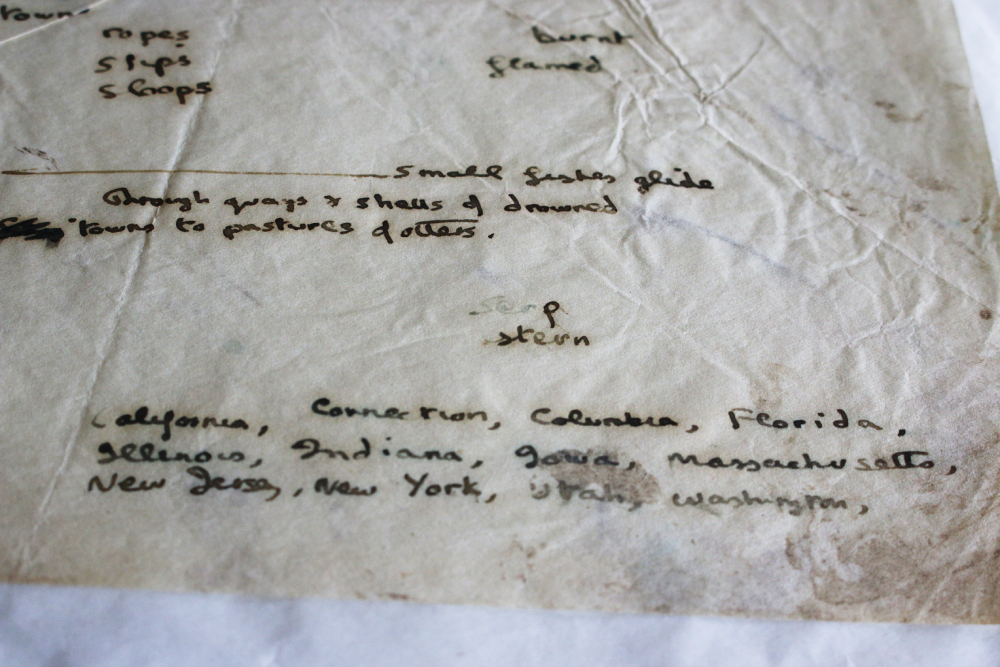 towns
ropes
burnt
slips
flamed
shops
Small fishes glide
Through quays & shells of drowned
towns to pastures of otters.
stern
California, Connection, Columbia, Florida,
Illinois, Indiana, Iowa, Massachusetts,
New Jersey, New York, Utah, Washington,